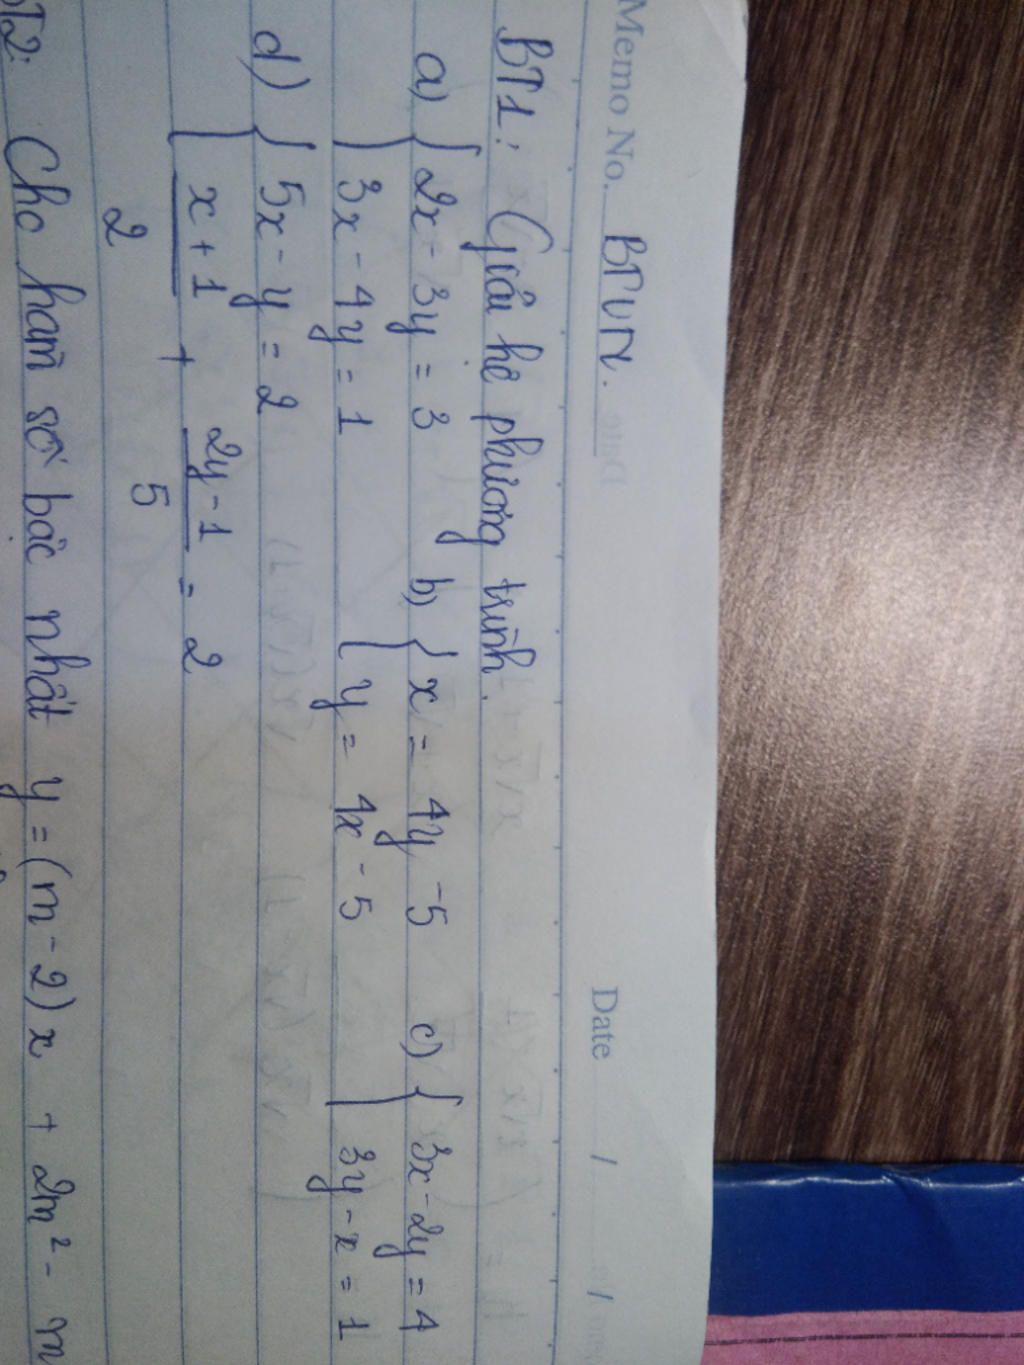 Memo No. BTVN. Date / /
BT1: Giải hệ phương trình.
a) { 2x - 3y = 3 b) { x = 4y - 5 c) { 3x - 2y = 4
3x - 4y = 1 y = 4x - 5 3y - x = 1
d) { 5x - y = 2
x + 1 / 2 + 2y - 1 / 5 = 2
BT2: Cho hàm số bậc nhất y = (m - 2) x + 2m² - m